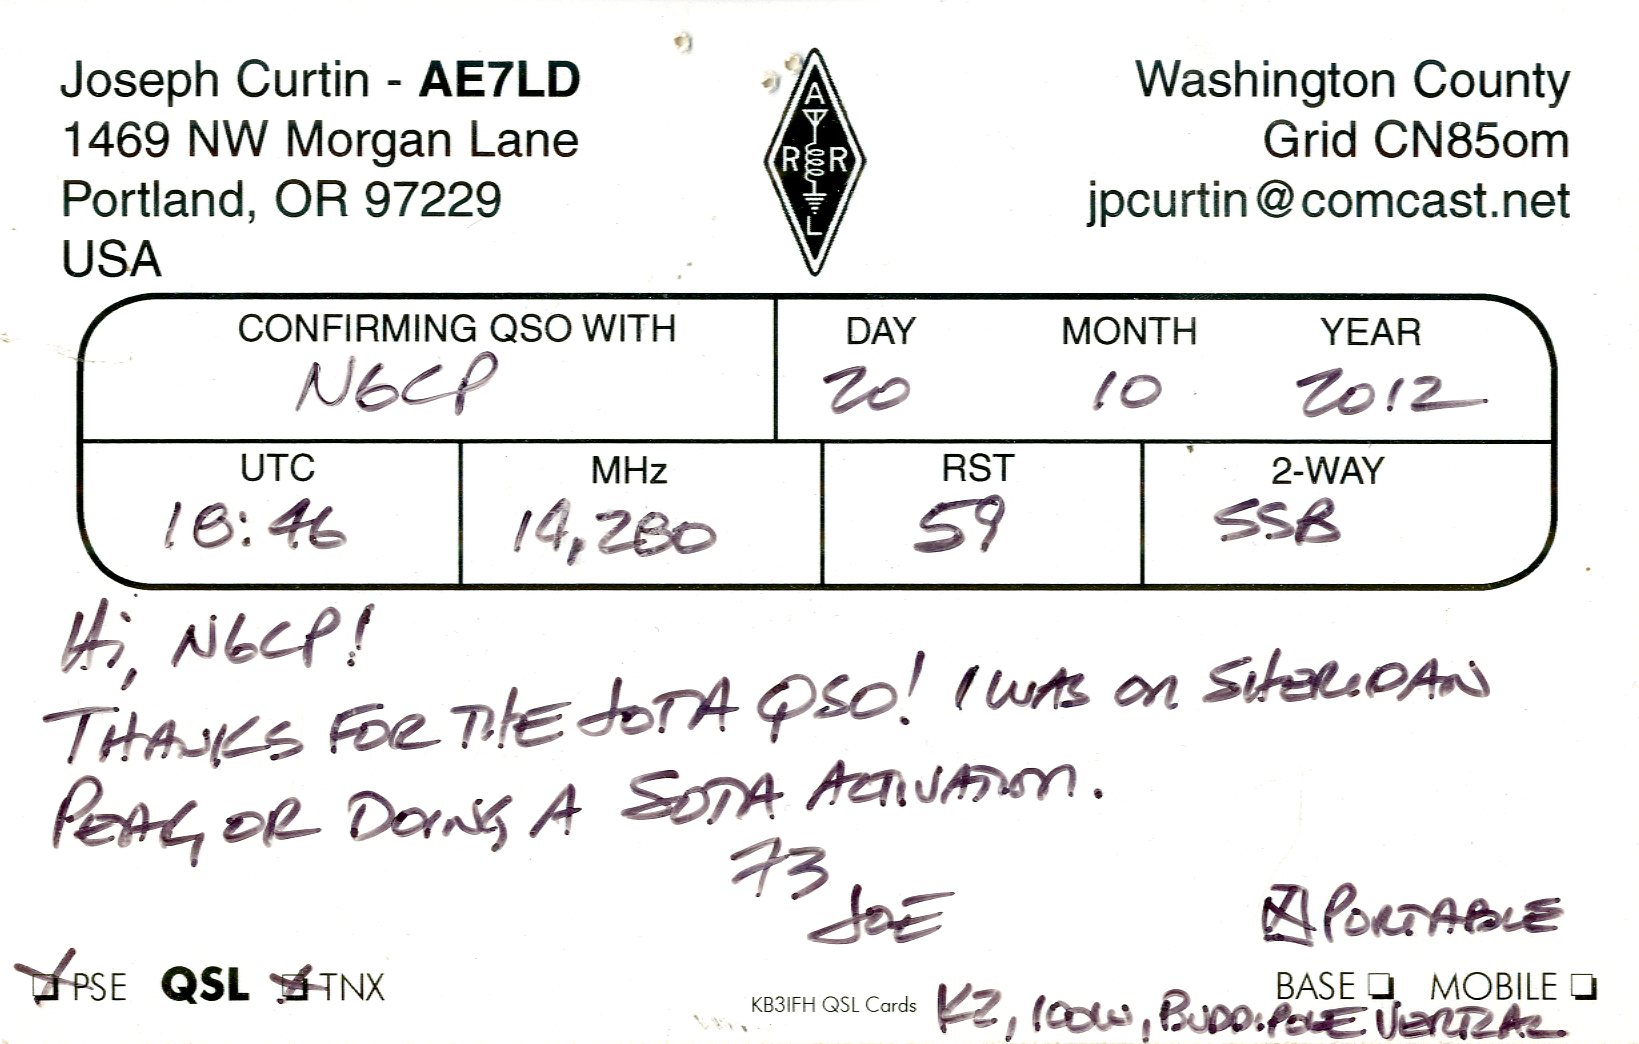 Joseph Curtin - AE7LD
1469 NW Morgan Lane
Portland, OR 97229
USA
A
R R
L
Washington County
Grid CN85om
jpcurtin@comcast.net
CONFIRMING QSO WITH
N6CP
DAY MONTH YEAR
20 10 2012
UTC MHz RST 2-WAY
18:46 14,280 59 SSB
Hi, N6CP!
THANKS FOR THE JOTA QSO! I WAS ON SHERIDAN
PEAK, OR DOING A SOTA ACTIVATION.
73
JOE
PORTABLE
PSE QSL TNX
KB3IFH QSL Cards
BASE MOBILE
K2, 100W, BUDDIPOLE VERTICAL